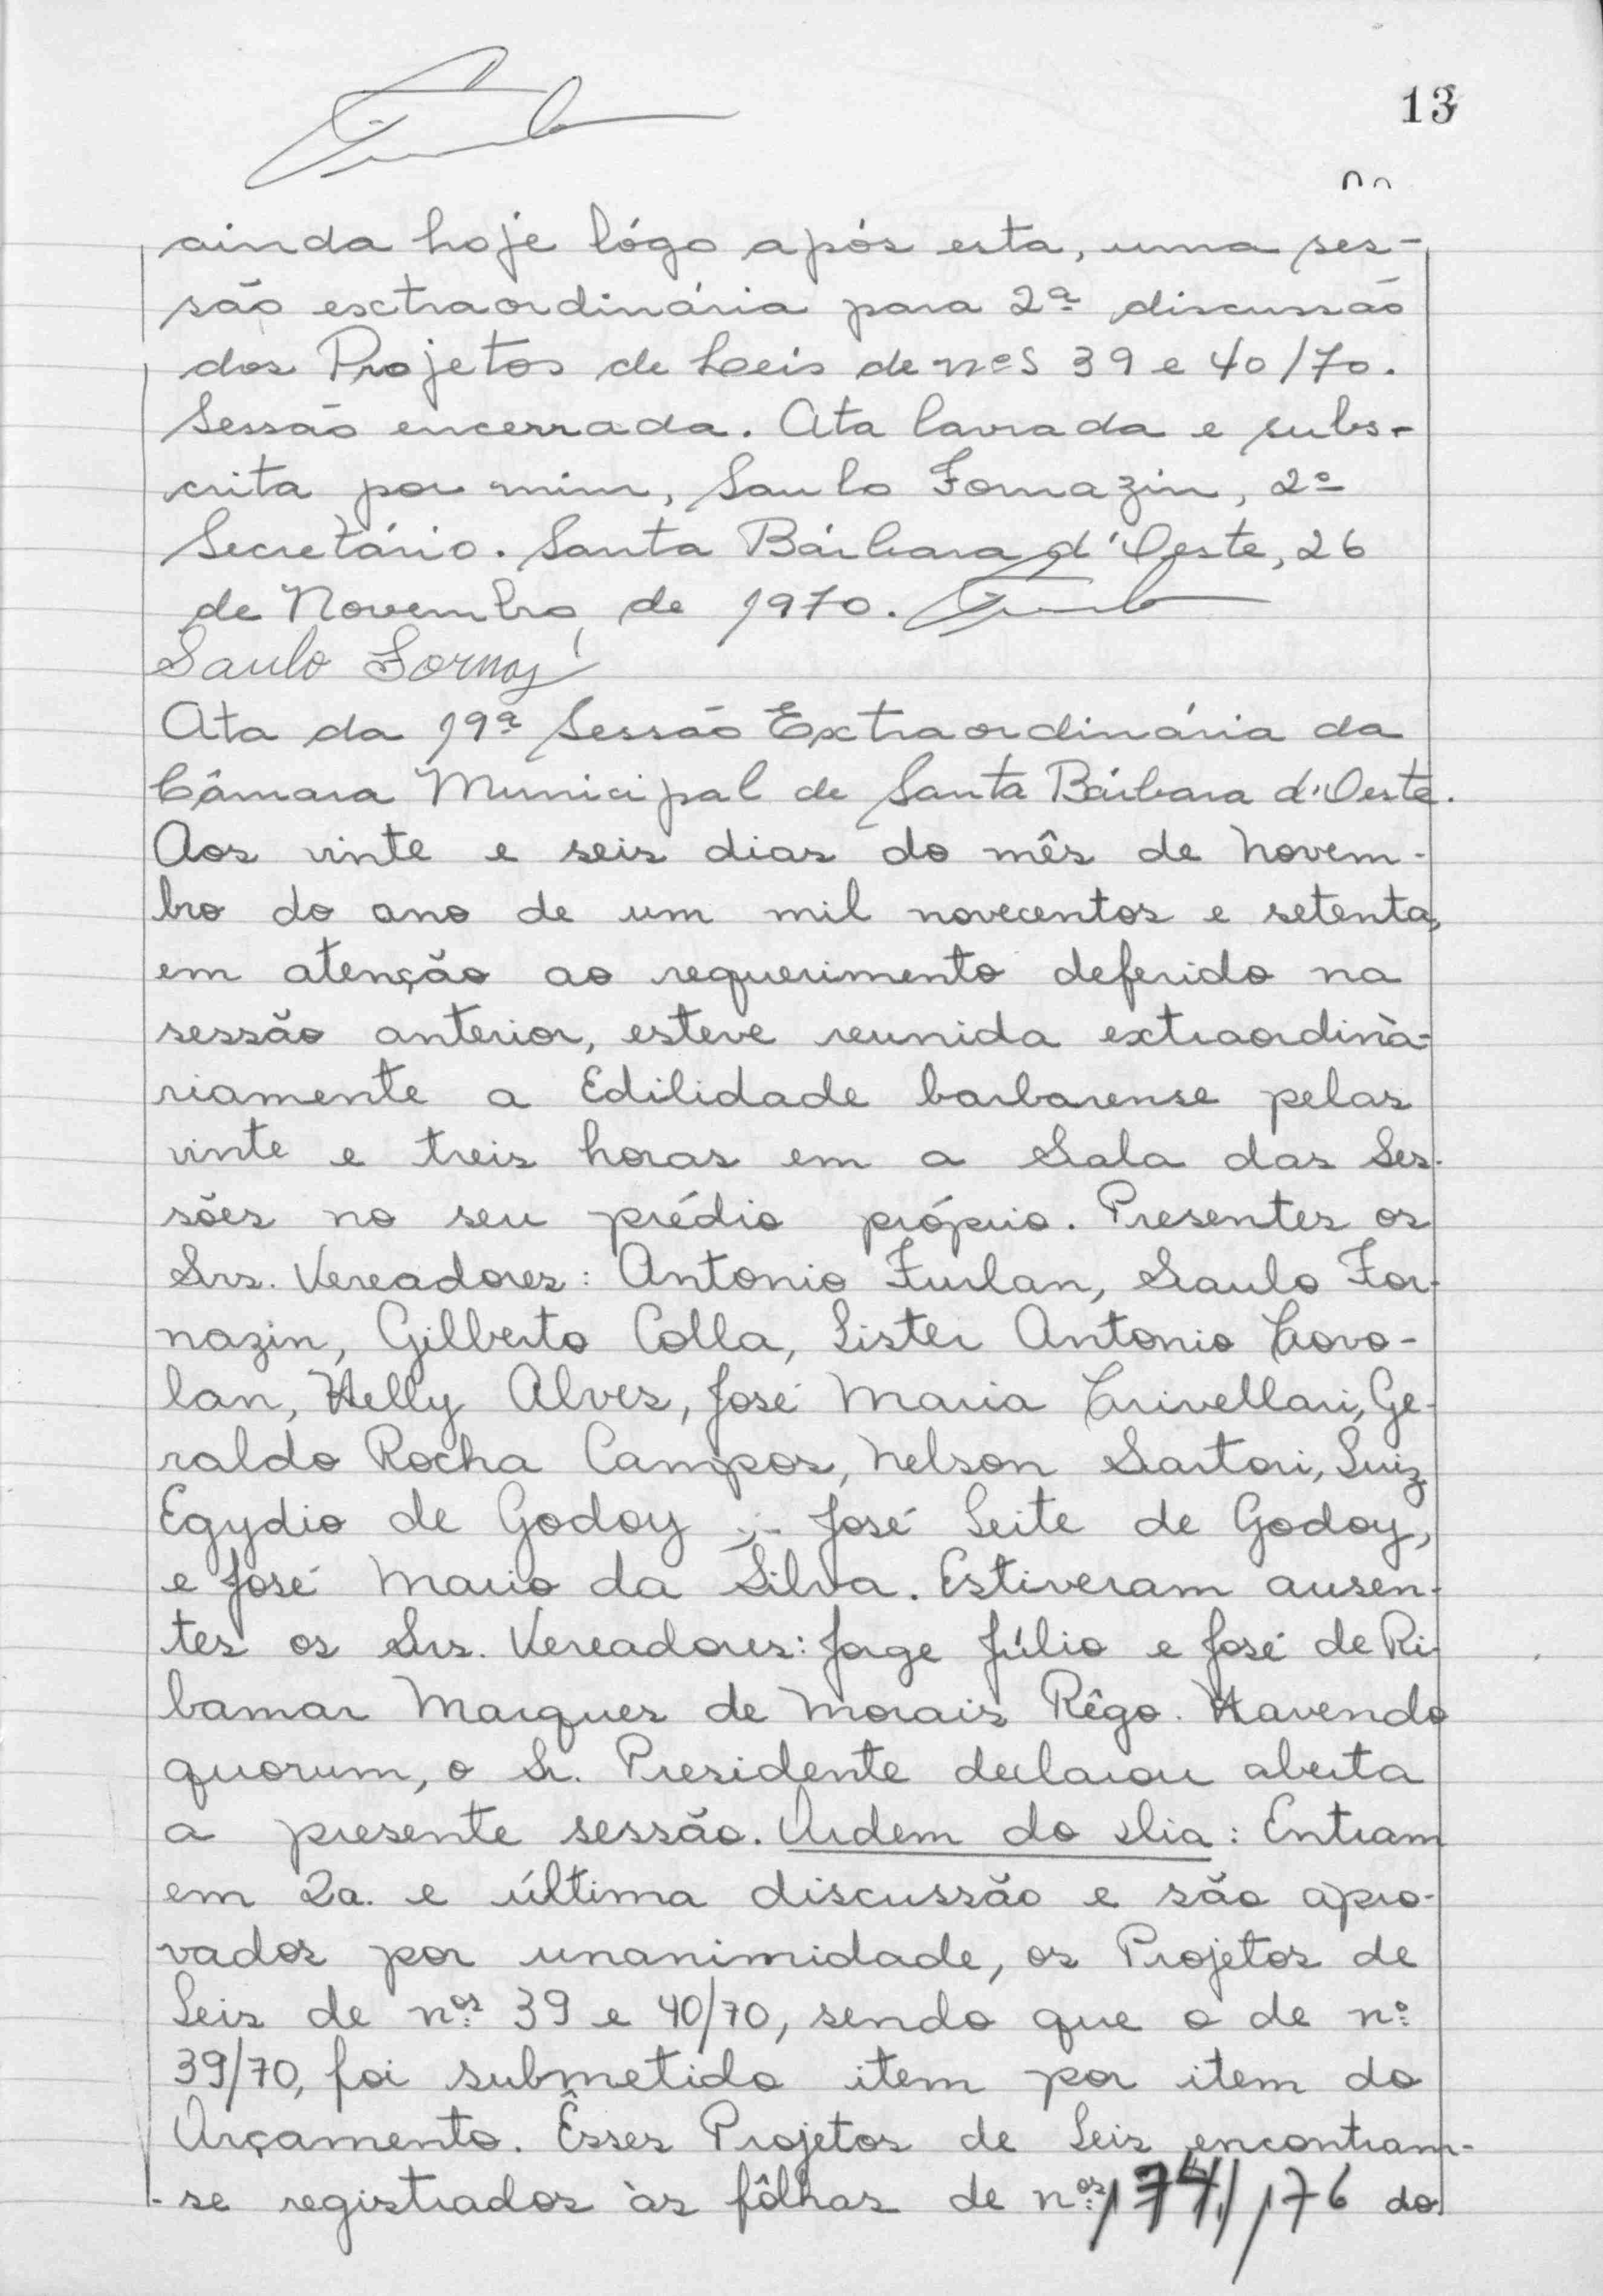 13
ainda hoje lógo após esta, uma ses-
são extraordinária para 2ª discussão
dos Projetos de Leis de nºs 39 e 40/70.
Sessão encerrada. Ata lavrada e subs-
crita por mim, Saulo Fornazin, 2º
Secretário. Santa Bárbara d'Oeste, 26
de Novembro de 1970.
Saulo
Ata da 19ª Sessão Extraordinária da
Câmara Municipal de Santa Bárbara d'Oeste.
Aos vinte e seis dias do mês de novem-
bro do ano de um mil novecentos e setenta,
em atenção ao requerimento deferido na
sessão anterior, esteve reunida extraordinà-
riamente a Edilidade barbarense pelas
vinte e treis horas em a Sala das Ses-
sões no seu prédio próprio. Presentes os
Srs. Vereadores: Antonio Furlan, Saulo For-
nazin, Gilberto Colla, Lister Antonio Covo-
lan, Helly Alves, José Maria Crivellari, Ge-
raldo Rocha Campos, Nelson Sartori, Luiz
Egydio de Godoy José Leite de Godoy,
e José Mario da Silva. Estiveram ausen-
tes os Srs. Vereadores: Jorge Júlio e José de Ri-
bamar Marques de Morais Rêgo. Havendo
quorum, o Sr. Presidente declarou aberta
a presente sessão. Ordem do dia: Entram
em 2a. e última discussão e são apro-
vados por unanimidade, os Projetos de
Leis de nos. 39 e 40/70, sendo que o de nº
39/70, foi submetido item por item do
Orçamento. Êsses Projetos de Leis encontram-
-se registrados às fôlhas de nos. 174/176 do